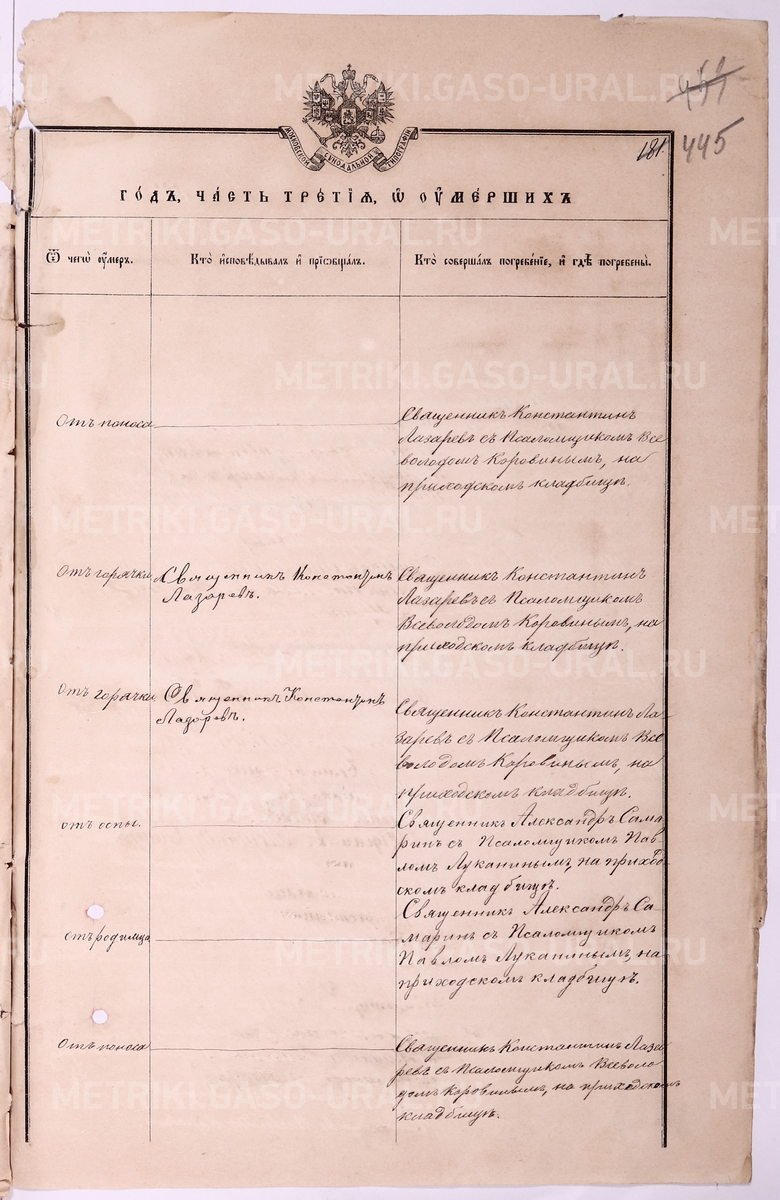 METRIKI.GASO-URAL.RU
445
181.
МОСКОВСКОЙ СѴНОДАЛЬНОЙ ТИПОГРАФІИ
ГОДЪ, ЧАСТЬ ТРЕТІЯ, Ѿ ОУМЕРШИХЪ
Ѿ чегѡ оумеръ.
Кто исповѣдывалъ и пріобщалъ.
Кто совершалъ погребеніе, и гдѣ погребены.
Отъ поноса
Священникъ Константинъ
Лазаревъ съ Псаломщикомъ Все
володомъ Коровинымъ, на
приходскомъ кладбищѣ.
Отъ горячки
Священникъ Константинъ
Лазаревъ.
Священникъ Константинъ
Лазаревъ съ Псаломщикомъ
Всеволодомъ Коровинымъ, на
приходскомъ кладбищѣ.
Отъ горячки
Священникъ Константинъ
Лазаревъ.
Священникъ Константинъ Ла
заревъ съ Псаломщикомъ Все
володомъ Коровинымъ, на
приходскомъ кладбищѣ.
отъ оспы.
Священникъ Александръ Сама
ринъ съ Псаломщикомъ Пав
ломъ Луканинымъ, на приход
скомъ кладбищѣ.
отъ родимца
Священникъ Александръ Са
маринъ съ Псаломщикомъ
Павломъ Луканинымъ, на
приходскомъ кладбищѣ.
Отъ поноса
Священникъ Константинъ Лаза
ревъ съ Псаломщикомъ Всеволо
домъ Коровинымъ, на приходскомъ
кладбищѣ.